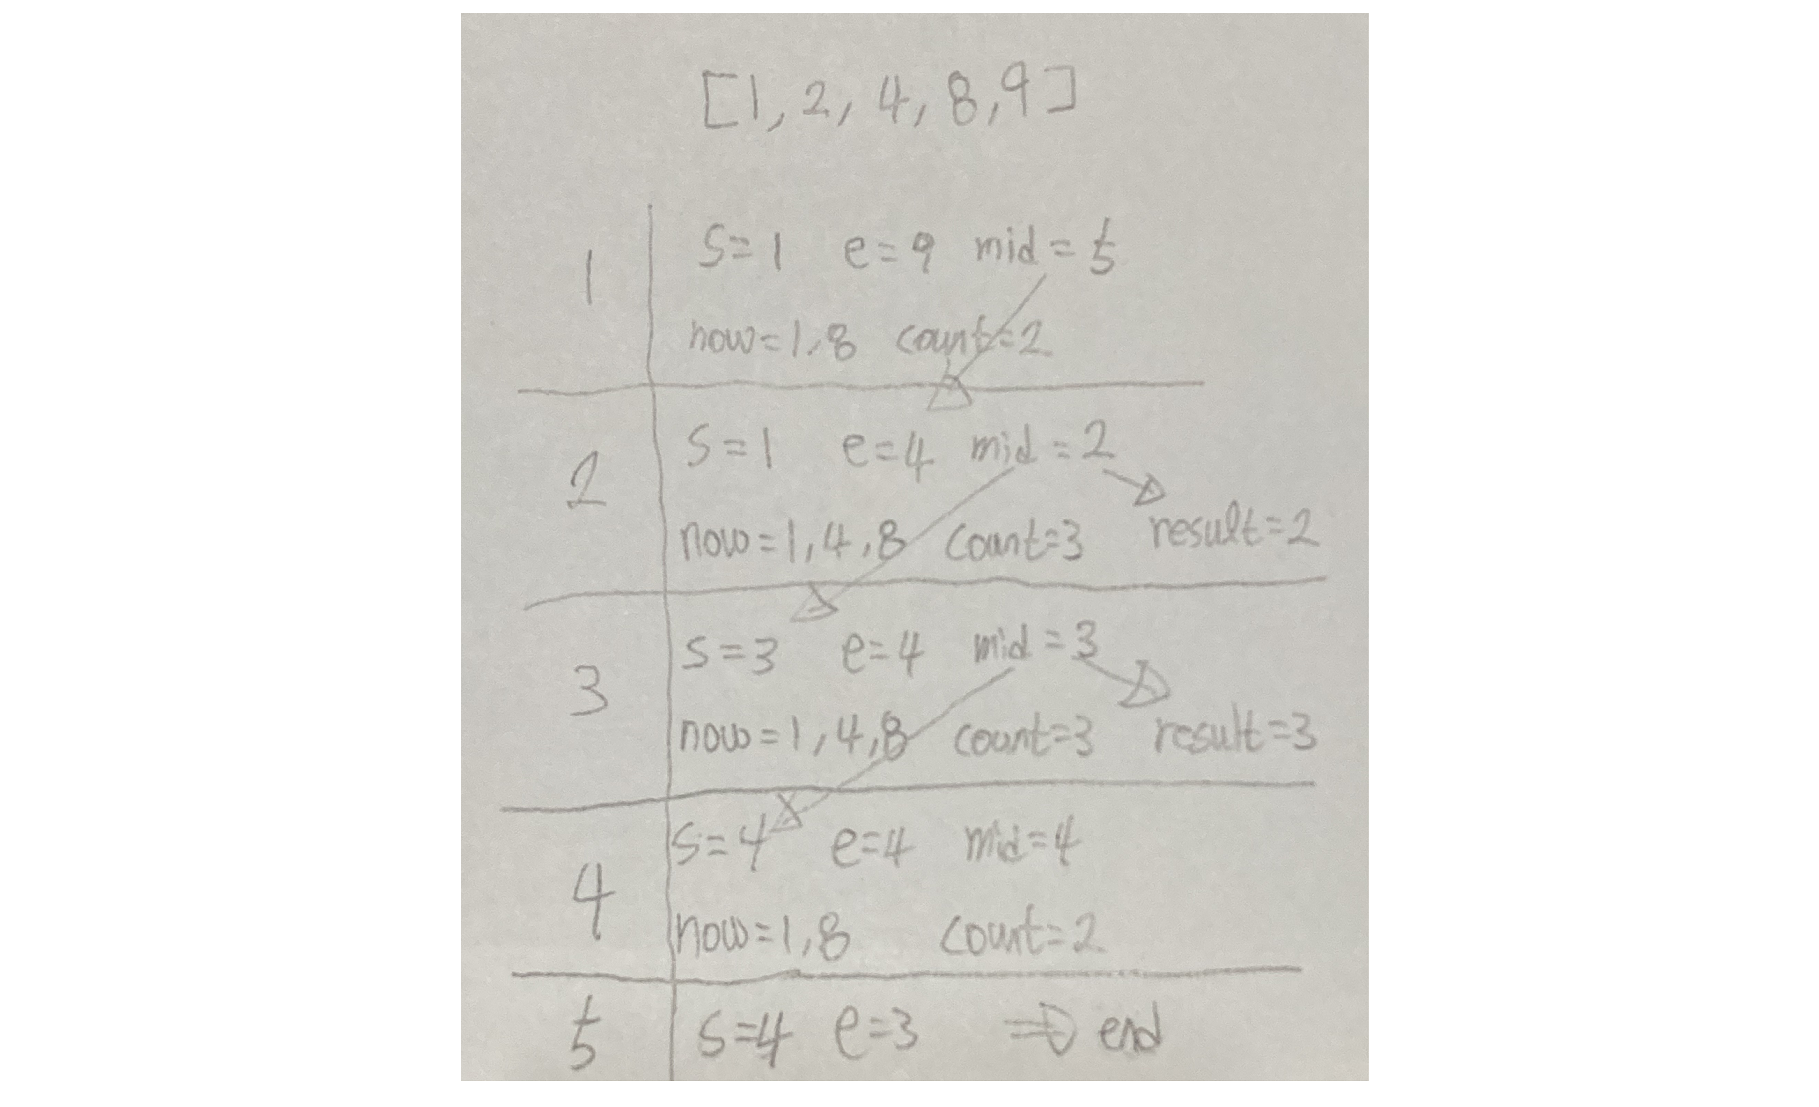 [1, 2, 4, 8, 9]
1
s=1 e=9 mid=5
now=1,8 count=2
2
s=1 e=4 mid=2
now=1,4,8 count=3 result=2
3
s=3 e=4 mid=3
now=1,4,8 count=3 result=3
4
s=4 e=4 mid=4
now=1,8 count=2
5
s=4 e=3 ⇒ end